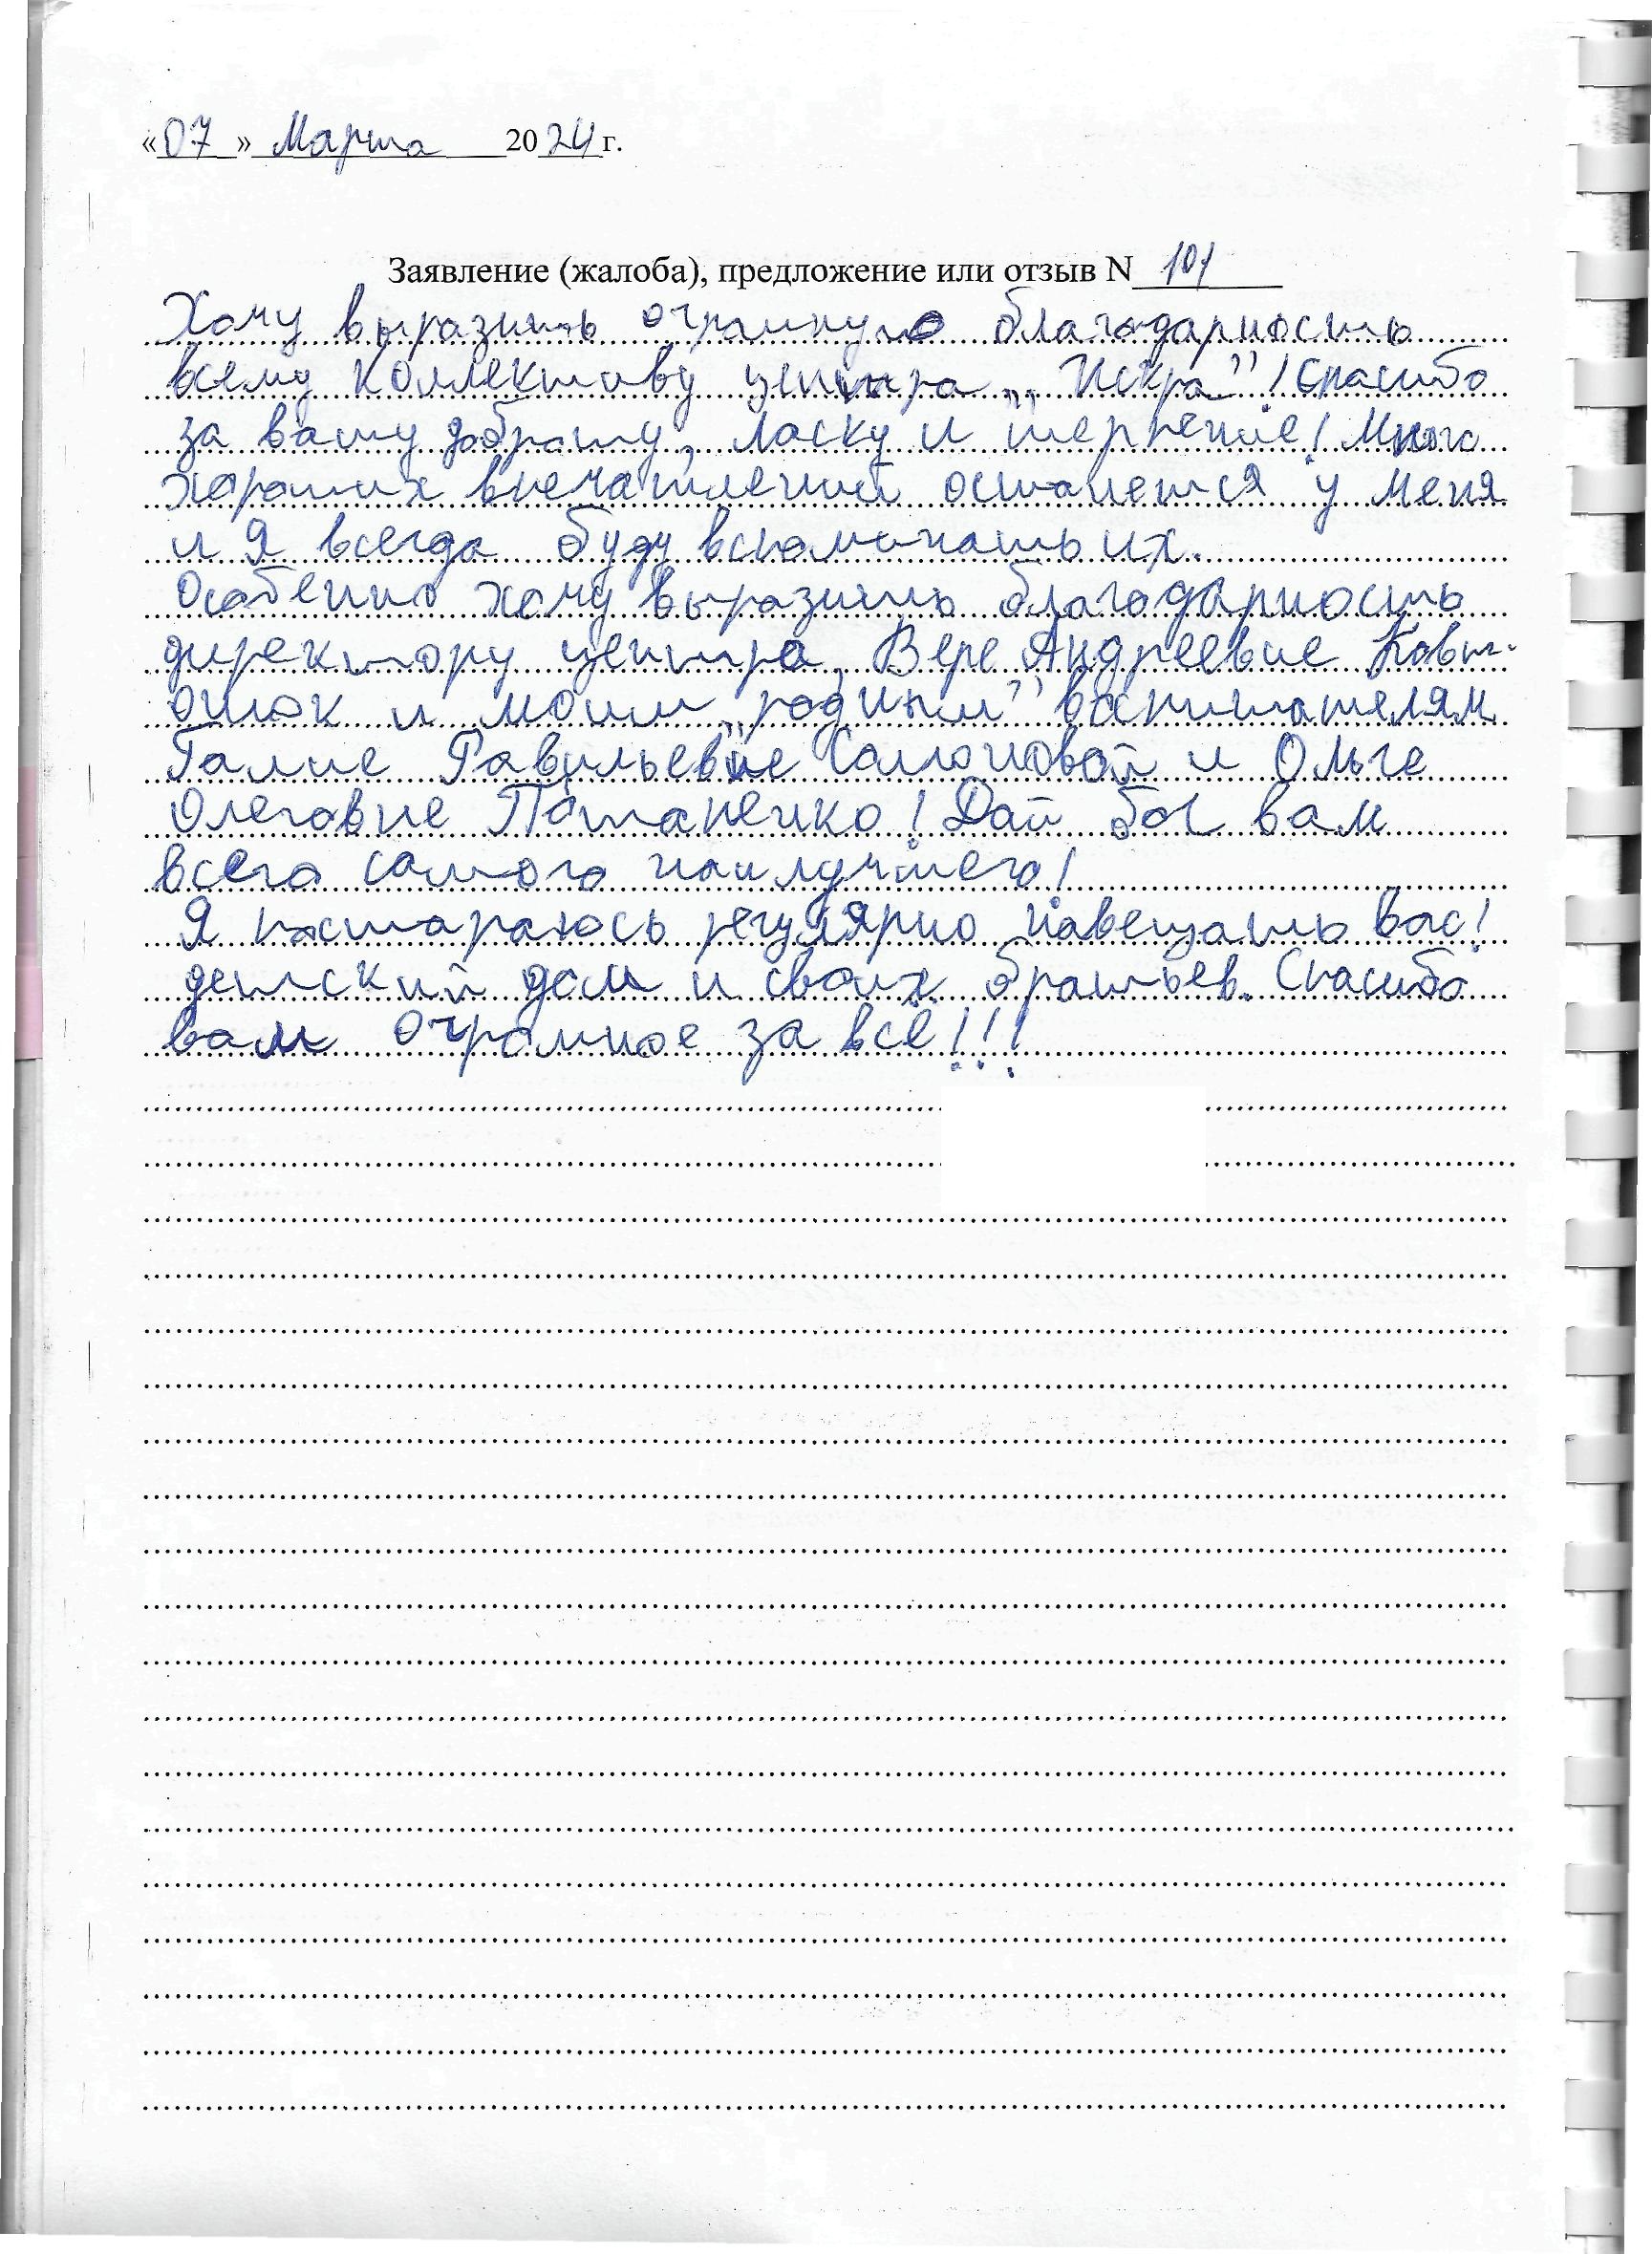 «07» Марта 2024 г.
Заявление (жалоба), предложение или отзыв N 101
Хочу выразить огромную благодарность
всему коллективу центра „Искра"! Спасибо
за вашу доброту, ласку и терпение! Много
хороших впечатлений останется у меня
и я всегда буду вспоминать их.
Особенно хочу выразить благодарность
директору центра, Вере Андреевне Ковт-
ошок и моим „родным" воспитателям
Галие Равильевне Салоновой и Ольге
Олеговне Потапенко! Дай бог вам
всего самого наилучшего!
Я постараюсь регулярно навещать вас!
детский дом и своих братьев. Спасибо
вам огромное за всё!!!